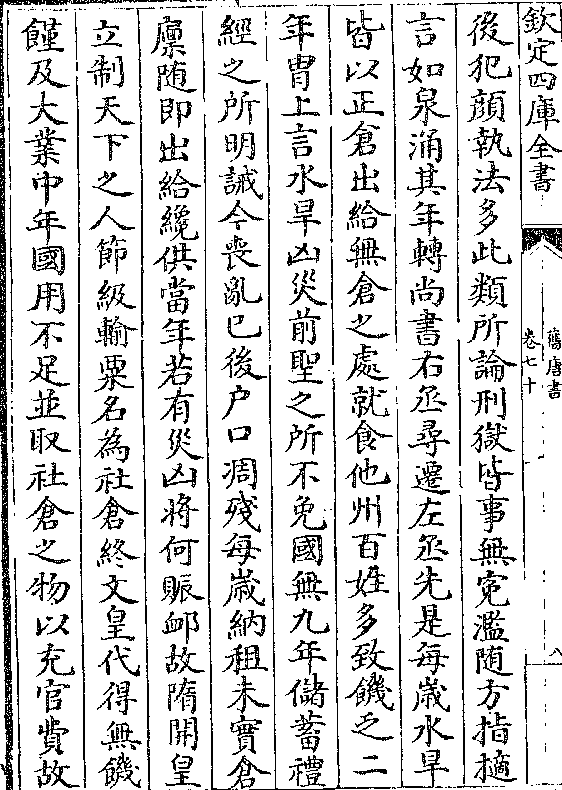 欽定四庫全書
舊唐書
卷七十
八
後犯顔執法多此類所論刑獄皆事無寃濫随方指擿
言如泉涌其年轉尚書右丞尋遷左丞先是每歳水旱
皆以正倉出給無倉之處就食他州百姓多致饑乏二
年胄上言水旱凶災前聖之所不免國無九年儲蓄禮
經之所明誡今喪亂已後户口凋殘每歳納租未實倉
廪随即出給纔供當年若有災凶將何賑䘏故隋開皇
立制天下之人節級輸粟名為社倉終文皇代得無饑
饉及大業中年國用不足並取社倉之物以充官費故